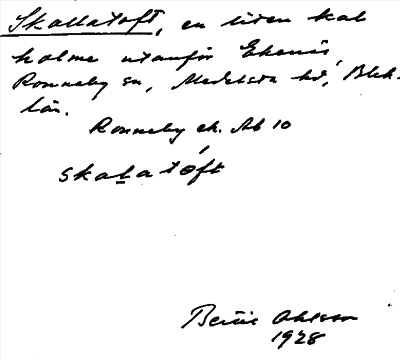 Skallatoft, en liten kal
holme utanför Ekenäs,
Ronneby sn, Medelsta hd, Blek.
län.
Ronneby ek. Ab 10
skaḷatòft
Bertil Ohlsson
1928